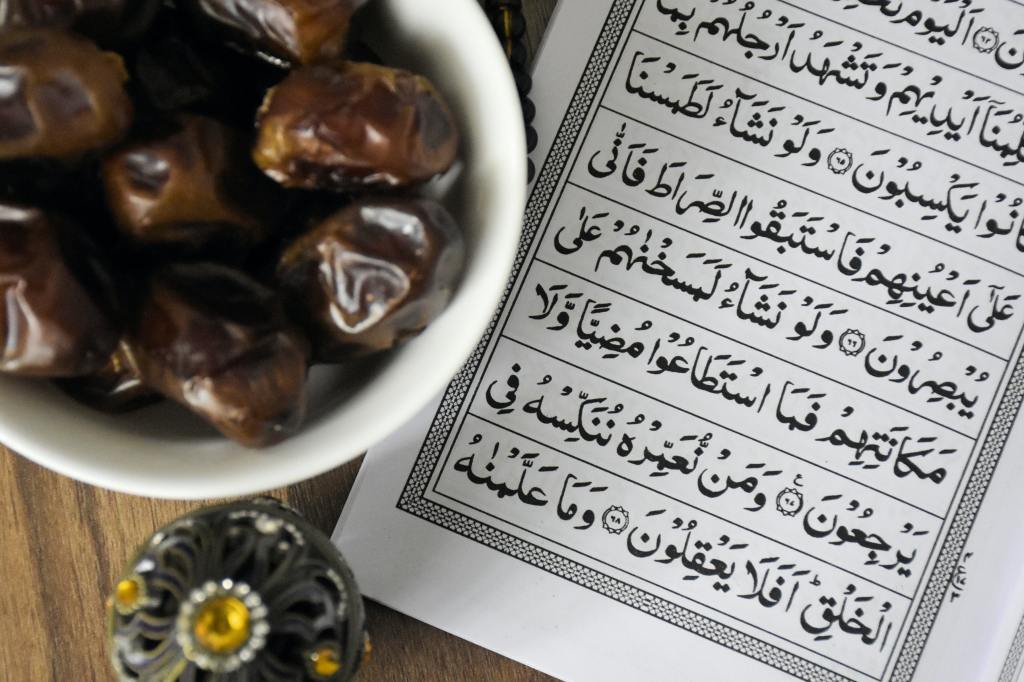 اَلْيَوْمَ
اَيْدِيْهِمْ وَتَشْهَدُ اَرْجُلُهُمْ بِمَا
ـانُوْا يَكْسِبُوْنَ ﴿٦٥﴾ وَلَوْ نَشَآءُ لَطَمَسْنَا
عَلٰۤى اَعْيُنِهِمْ فَاسْتَبَقُوا الصِّرَاطَ فَاَنّٰى
يُبْصِرُوْنَ ﴿٦٦﴾ وَلَوْ نَشَآءُ لَمَسَخْنٰهُمْ عَلٰى
مَكَانَتِهِمْ فَمَا اسْتَطَاعُوْا مُضِيًّا وَّلَا
يَرْجِعُوْنَ ﴿٦٧﴾ وَمَنْ نُّعَمِّرْهُ نُنَكِّسْهُ فِى
الْخَلْقِؕ اَفَلَا يَعْقِلُوْنَ ﴿٦٨﴾ وَمَا عَلَّمْنٰهُ